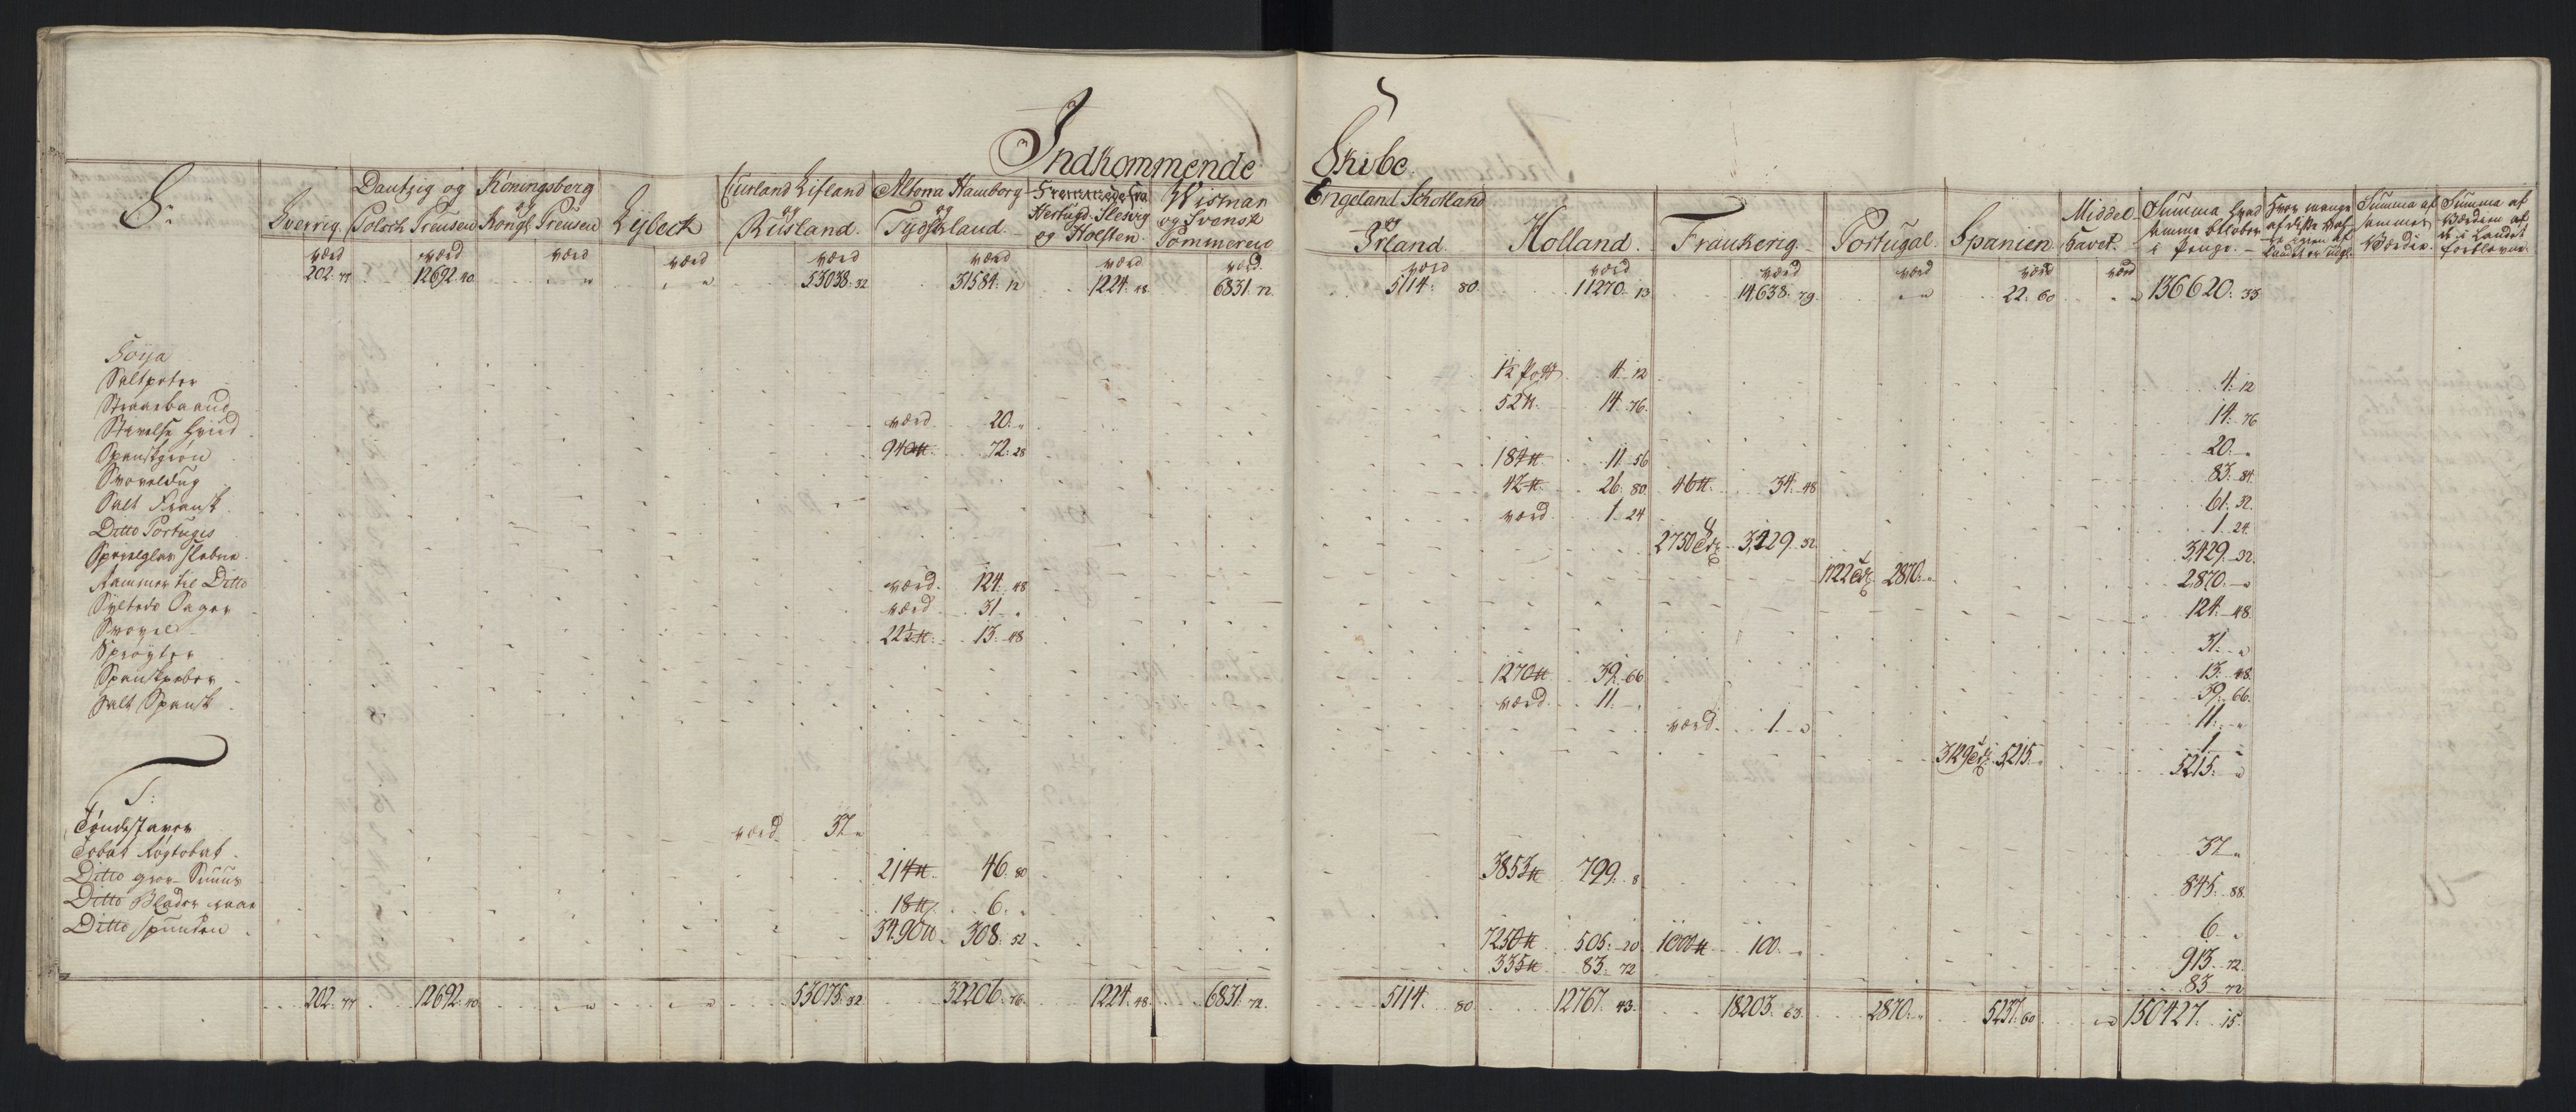 Indkommende Skibe
S:
Sverrig.
Dantzig og Polsch Preusen
Køningsberg og Kongl: Preusen
Lybeck
Curland Lifland og Rusland.
Altona Hamborg og Tydskland.
Hertugd: Slesvig og Holsten.
Wismar og Svensk Pommeren
Engeland Schotland og Irland.
Holland.
Frankerig.
Portugal.
Spanien
Middel-Havet.
Summa hvad samme bliver i Penge.
Summa af sammes Værdie.
Summa af Værdien af det i Landet forblevne.
værd værd værd værd værd værd værd værd værd værd værd værd værd værd
202. 77 12692. 40 " " " " 53038. 32 31584. 12 1224. 48 6831. 72 5114. 80 11270. 13 14638. 79 " " 22. 60 " " 136620. 33
Soya 1½ Pott 4. 12 4. 12
Saltpeter 52 ℔ 14. 76 14. 76
Straaebaand værd 20. " 20. "
Stivelse hviid 940 ℔ 72. 28 184 ℔ 11. 56 83. 84
Spanskgrøn 42 ℔ 26. 80 46 ℔ 34. 48 61. 32
Svoveldug værd 1. 24 1. 24
Salt Fransk 2750 Tdr 3429. 32 3429. 32
Ditto Portugis 1722 Tdr 2870. " 2870. "
Speielglas slebne værd 124. 48 124. 48
Rammer til Ditto værd 31. " 31. "
Syltede Sager 22½ ℔ 13. 48 13. 48
Svovel 1270 ℔ 39. 66 39. 66
Sprøyter værd 11. " 11. "
Spanskpeber værd 1. " 1. "
Salt Spansk 3129 Tdr 5215. " 5215. "
T:
Tøndestaver værd 37. " 37. "
Tobak Røgtobak 214 ℔ 46. 80 3853 ℔ 799. 8 845. 88
Ditto grov Snuus 18 ℔ 6. " 6. "
Ditto Blader raae 3490 ℔ 308. 52 7250 ℔ 505. 20 1000 ℔ 100. " 913. 72
Ditto spunden 335 ℔ 83. 72 83. 72
202. 77 12692. 40 " " " " 53075. 32 32206. 76 1224. 48 6831. 72 5114. 80 12767. 43 18203. 63 2870. " 5237. 60 " " 150427. 15